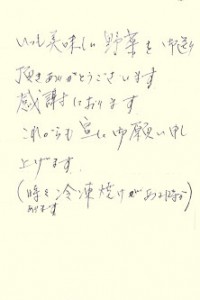 いつも美味しい野菜を御送り
頂きありがとうございます
感謝しております
これからも宜しく御願い申し
上げます.
(時々冷凍焼けがあります